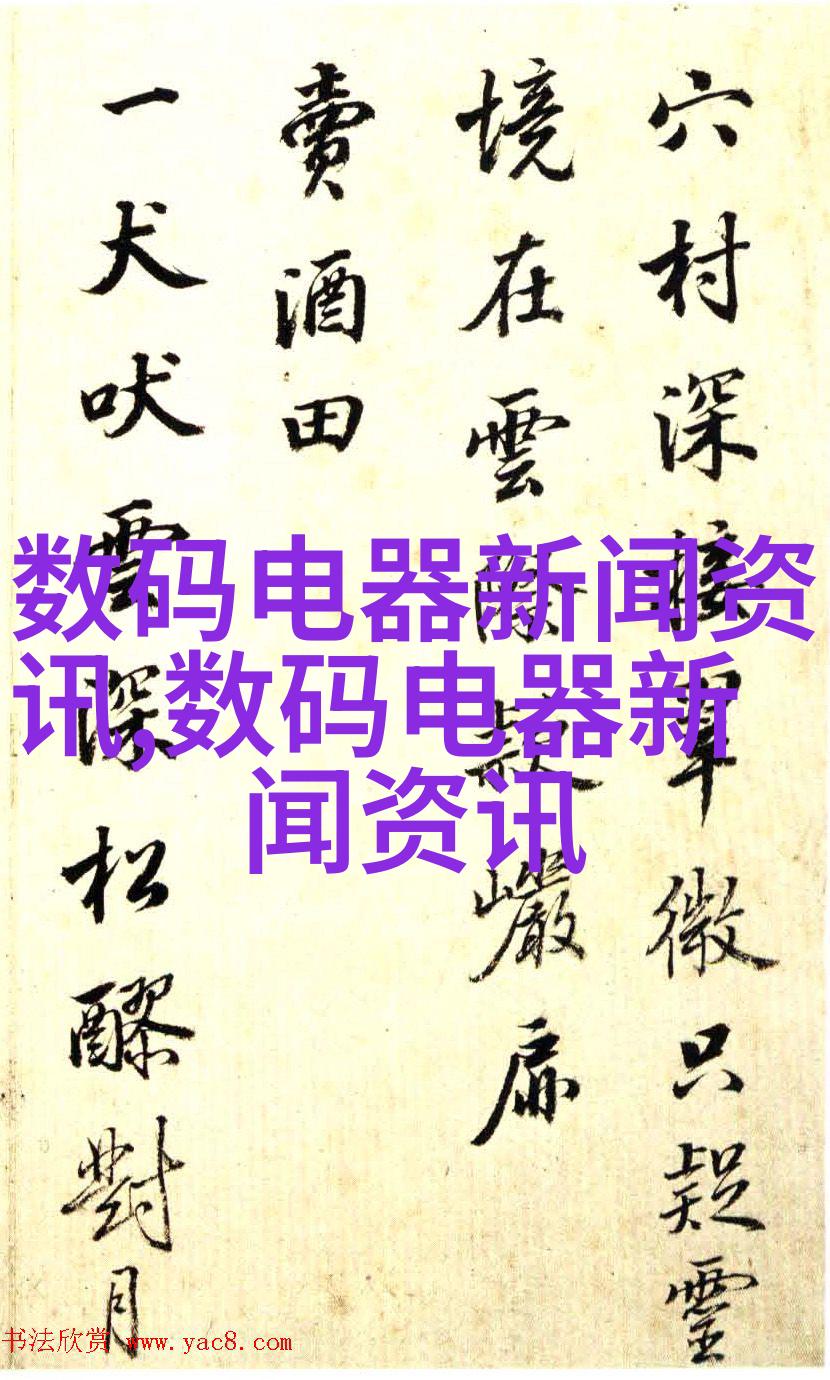 穴村深接翠微只疑靈
境在雲際疑巖扉
賣酒田
一犬吠雲深松醪對月
数码电器新闻资
讯,数码电器新
闻资讯
书法欣赏 www.yac8.com